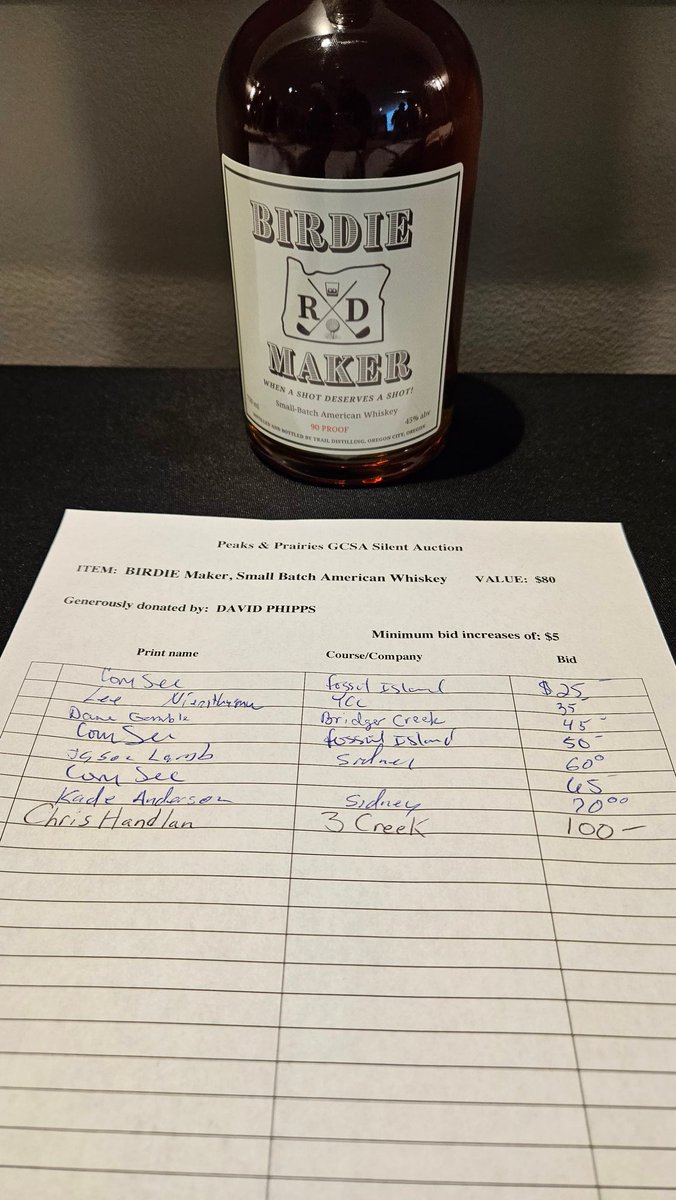 BIRDIE
R D
MAKER
WHEN A SHOT DESERVES A SHOT!
Small-Batch American Whiskey
90 PROOF 45% abv
DISTILLED AND BOTTLED BY TRAIL DISTILLING, OREGON CITY, OREGON
Peaks & Prairies GCSA Silent Auction
ITEM: BIRDIE Maker, Small Batch American Whiskey VALUE: $80
Generously donated by: DAVID PHIPPS
Minimum bid increases of: $5
Print name Course/Company Bid
See Fossil Island $25
Lee 35
Gamble Bridger Creek 45
See Fossil Island 50
Jason Lamb Sidney 60
See 65
Kade Anderson Sidney 70
Chris Handlan 3 Creek 100